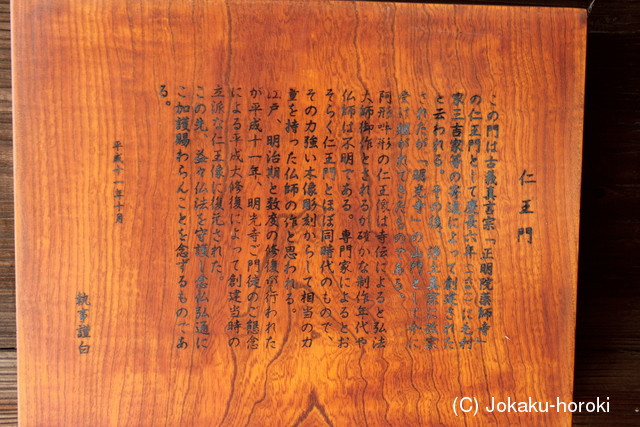 仁王門
この門は古義真言宗「正明院薬師寺」
の仁王門として慶長六年
家三吉家等の寄進によって創建された
と云われる。その後、浄土真宗に改宗
されたが「明光寺」の山師として今に
受け継がれてきたものである。
阿形吽形の仁王像は寺伝によると弘法
大師御作とされるが確かな制作年代や
仏師は不明である。専門家によるとお
そらく仁王門とほぼ同時代のもので、
その力強い木像彫刻からして相当の力
量を持った仏師の作と思われる。
江戸、明治期と数度の修復が行われた
が平成十一年、明光寺ご門徒のご懇念
による平成大修復によって創建当時の
立派な仁王像に復元された。
この先、益々仏法を守護し念仏弘通に
ご加護賜わらんことを念ずるものであ
る。
平成十一年十月
執事謹白
(C) Jokaku-horoki